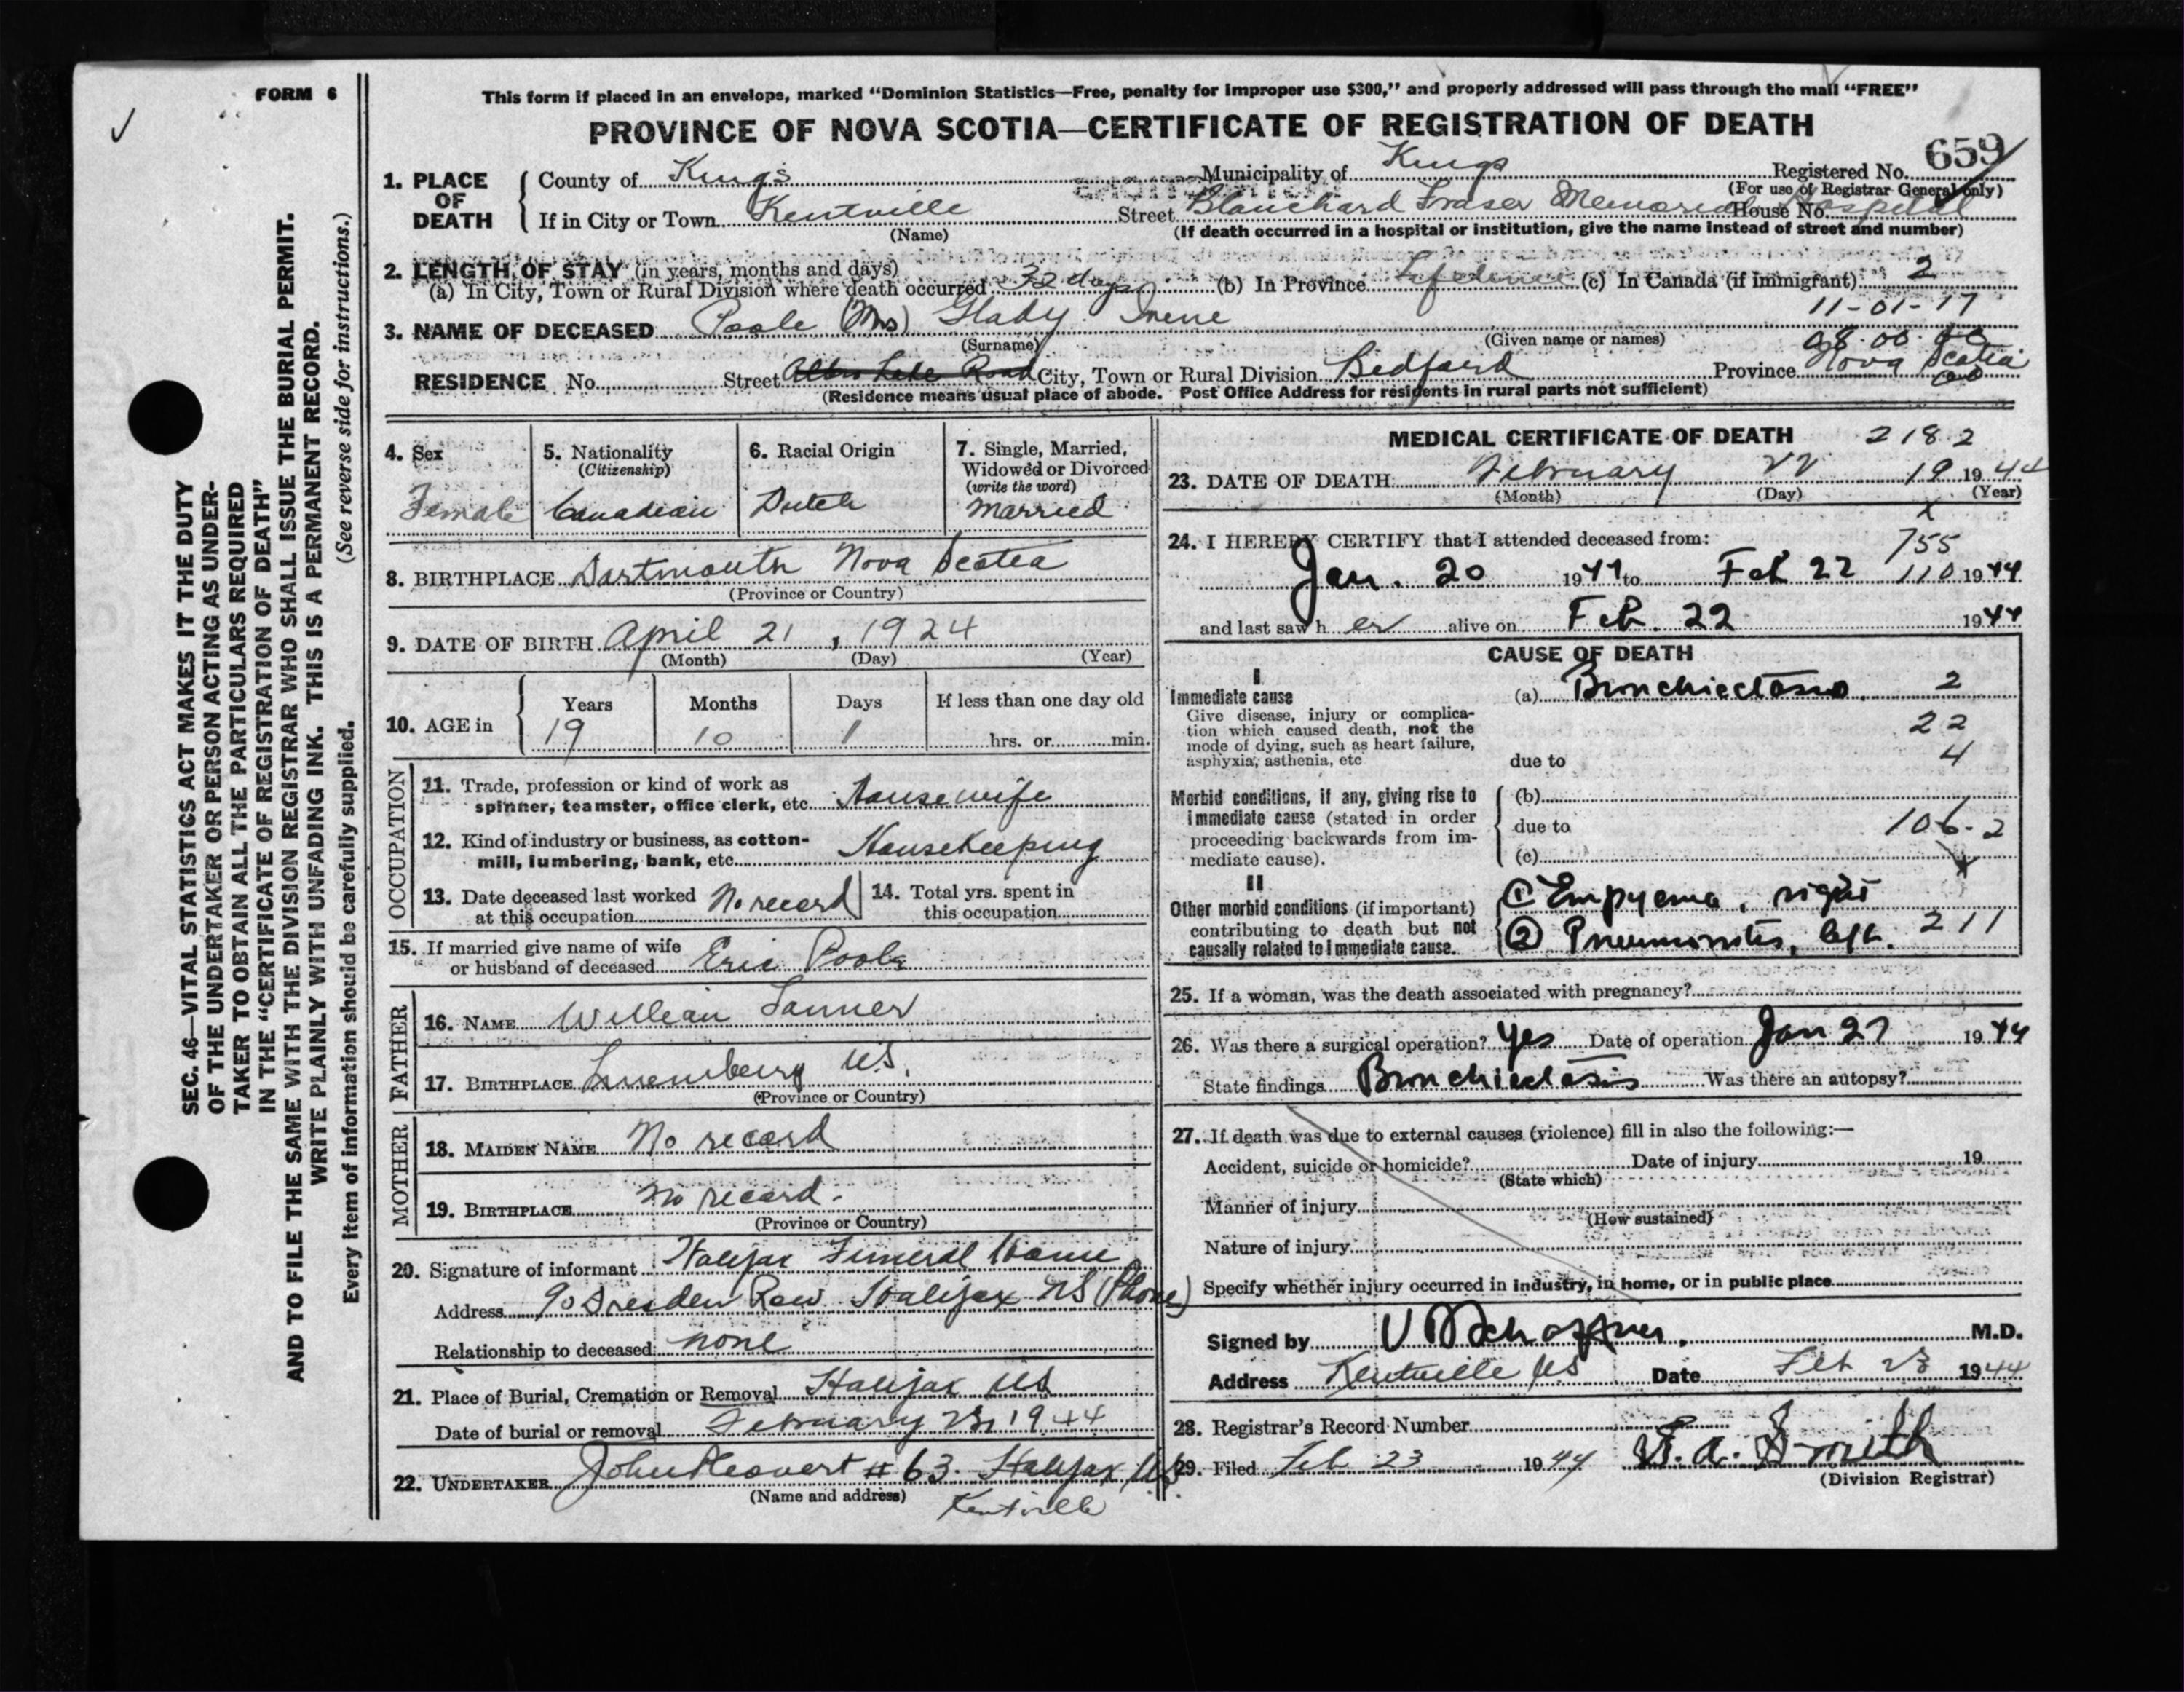 FORM 6
This form if placed in an envelope, marked “Dominion Statistics—Free, penalty for improper use $300,” and properly addressed will pass through the mail “FREE”
PROVINCE OF NOVA SCOTIA—CERTIFICATE OF REGISTRATION OF DEATH
659
1. PLACE OF DEATH
County of Kings Municipality of Kings Registered No.
(For use of Registrar General only)
If in City or Town Kentville Street Blanchard Fraser Memorial Hospital House No.
(Name) (If death occurred in a hospital or institution, give the name instead of street and number)
2. LENGTH OF STAY (in years, months and days)
(a) In City, Town or Rural Division where death occurred 32 days (b) In Province Lifetime (c) In Canada (if immigrant) 2
11-01-17
3. NAME OF DECEASED Poole (Mrs) Glady Irene
(Surname) (Given name or names)
RESIDENCE No. Street Albro Lake Road City, Town or Rural Division Bedford Province Nova Scotia
(Residence means usual place of abode. Post Office Address for residents in rural parts not sufficient)
4. Sex
Female
5. Nationality
(Citizenship)
Canadian
6. Racial Origin
Dutch
7. Single, Married,
Widowed or Divorced
(write the word)
Married
8. BIRTHPLACE Dartmouth Nova Scotia
(Province or Country)
9. DATE OF BIRTH April 21, 1924
(Month) (Day) (Year)
10. AGE in
Years Months Days If less than one day old
19 10 1 hrs. or min.
OCCUPATION
11. Trade, profession or kind of work as
spinner, teamster, office clerk, etc. Housewife
12. Kind of industry or business, as cotton-
mill, lumbering, bank, etc. Housekeeping
13. Date deceased last worked
at this occupation No record
14. Total yrs. spent in
this occupation
15. If married give name of wife
or husband of deceased Eric Poole
FATHER
16. NAME William
17. BIRTHPLACE N.S.
(Province or Country)
MOTHER
18. MAIDEN NAME No record
19. BIRTHPLACE No record.
(Province or Country)
20. Signature of informant Halifax Funeral Home
Address 90 Dresden Row Halifax NS (Phone)
Relationship to deceased none
21. Place of Burial, Cremation or Removal Halifax NS
Date of burial or removal February 23, 1944
22. UNDERTAKER John # 63. Halifax NS
(Name and address) Kentville
MEDICAL CERTIFICATE OF DEATH 2182
23. DATE OF DEATH February 22 19 1944
(Month) (Day) (Year)
x
24. I HEREBY CERTIFY that I attended deceased from: 755
Jan. 20 1944 to Feb 22 110 1944
and last saw h er alive on Feb. 22 1944
CAUSE OF DEATH
I
Immediate cause
Give disease, injury or complica-
tion which caused death, not the
mode of dying, such as heart failure,
asphyxia, asthenia, etc
(a) Bronchiectasis. 2
22
due to 4
Morbid conditions, if any, giving rise to
immediate cause (stated in order
proceeding backwards from im-
mediate cause).
(b)
due to 106-2
(c)
II
Other morbid conditions (if important)
contributing to death but not
causally related to immediate cause.
① Empyema, right
② Pneumonitis, left. 211
25. If a woman, was the death associated with pregnancy?
26. Was there a surgical operation? Yes Date of operation Jan 27 1944
State findings Bronchiectasis Was there an autopsy?
27. If death was due to external causes (violence) fill in also the following:—
Accident, suicide or homicide? Date of injury 19
(State which)
Manner of injury
(How sustained)
Nature of injury
Specify whether injury occurred in industry, in home, or in public place
Signed by M.D.
Address Kentville NS Date Feb 23 1944
28. Registrar's Record Number
29. Filed Feb 23 1944 Smith
(Division Registrar)
SEC. 46—VITAL STATISTICS ACT MAKES IT THE DUTY
OF THE UNDERTAKER OR PERSON ACTING AS UNDER-
TAKER TO OBTAIN ALL THE PARTICULARS REQUIRED
IN THE “CERTIFICATE OF REGISTRATION OF DEATH”
AND TO FILE THE SAME WITH THE DIVISION REGISTRAR WHO SHALL ISSUE THE BURIAL PERMIT.
WRITE PLAINLY WITH UNFADING INK. THIS IS A PERMANENT RECORD.
Every item of information should be carefully supplied. (See reverse side for instructions.)